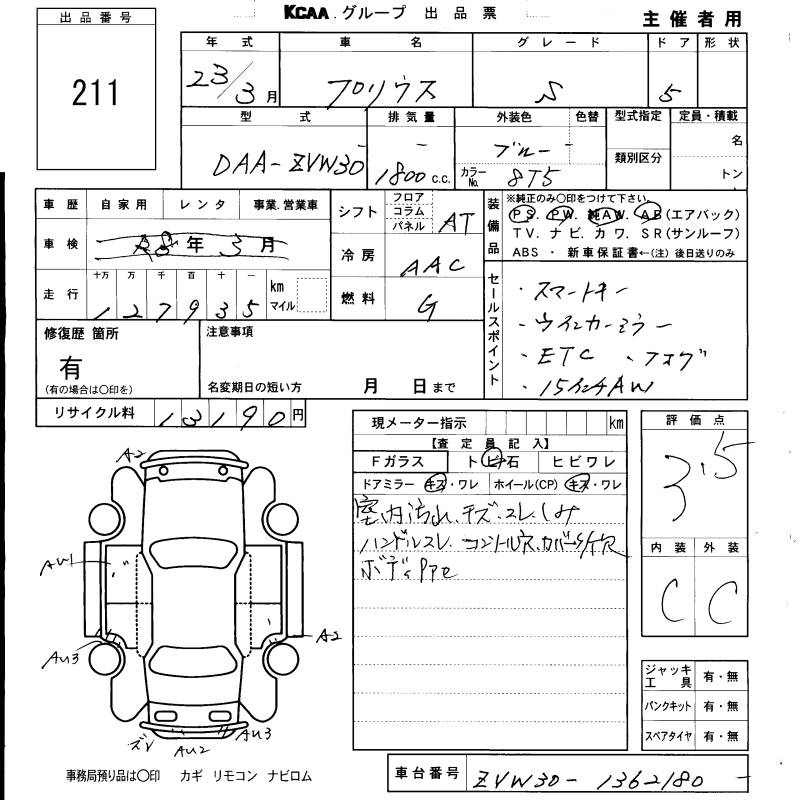 KCAA.グループ 出品票
主催者用
出品番号
211
年式 車名 グレード ドア 形状
23/3月 プリウス S 5
型式 排気量 外装色 色替 型式指定 定員・積載
DAA-ZVW30 1800c.c. ブルー 名
カラーNo. 8T5 類別区分 トン
車歴 自家用 レンタ 事業.営業車
車検 年 3月
走行 十万 万 千 百 十 一 km マイル
127935
シフト フロア コラム パネル AT
冷房 AAC
燃料 G
装備品 ※純正のみ〇印をつけて下さい。
PS. PW. 純AW. AB(エアバック)
TV. ナビ. カワ. SR(サンルーフ)
ABS ・ 新車保証書←(注) 後日送りのみ
セールスポイント
・スマートキー
・ウインカーミラー
・ETC ・フォグ
・15インチAW
修復歴 箇所
有
(有の場合は〇印を)
注意事項
名変期日の短い方 月 日まで
リサイクル料 13190円
現メーター指示 km
【査定員記入】
Fガラス トビ石 ヒビワレ
ドアミラー キズ・ワレ ホイール(CP) キズ・ワレ
室内汚れ.キズ.スレ.しみ
ハンドルスレ.
ボディ
評価点
3.5
内装 外装
C C
ジャッキ工具 有・無
パンクキット 有・無
スペアタイヤ 有・無
A2
AU1
A2
AU3
ズレ
AU2
AU3
事務局預り品は〇印 カギ リモコン ナビロム
車台番号 ZVW30-1362180